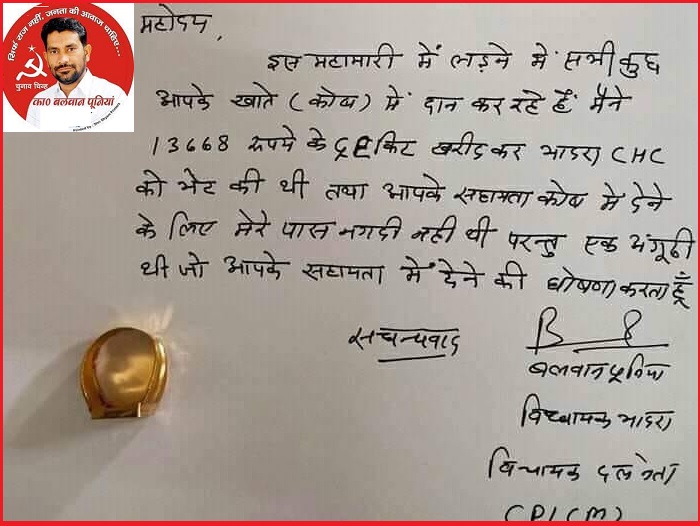 सिर्फ राज नहीं, जनता की आवाज चाहिए...
चुनाव चिन्ह
का० बलवान पूनियां
महोदय,
इस महामारी में लड़ने में सभी कुछ
आपके खाते (कोष) में दान कर रहे हैं मैंने
13668 रुपये के PPE किट खरीदकर भादरा CHC
को भेंट की थी तथा आपके सहायता कोष मे देने
के लिए मेरे पास नगदी नही थी परन्तु एक अंगूठी
थी जो आपके सहायता में देने की घोषणा करता हूँ
सधन्यवाद
बलवान पूनिया
विधायक भादरा
विधायक दल नेता
CPI(M)